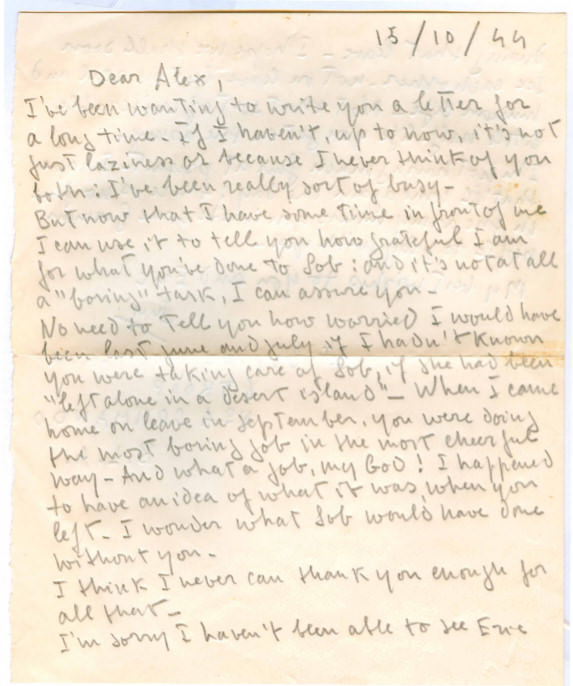 15/10/44
Dear Alex,
I've been wanting to write you a letter for
a long time - If I haven't, up to now, it's not
just laziness or because I never think of you
both: I've been really sort of busy -
But now that I have some time in front of me
I can use it to tell you how grateful I am
for what you've done to Sob: and it's not at all
a "boring" task, I can assure you -
No need to tell you how worried I would have
been last June and July if I hadn't known
you were taking care of Sob, if she had been
"left alone in a desert island" - When I came
home on leave in September, you were doing
the most boring job in the most cheerful
way - And what a job, my God! I happened
to have an idea of what it was, when you
left. I wonder what Sob would have done
without you -
I think I never can thank you enough for
all that -
I'm sorry I haven't been able to see Eric